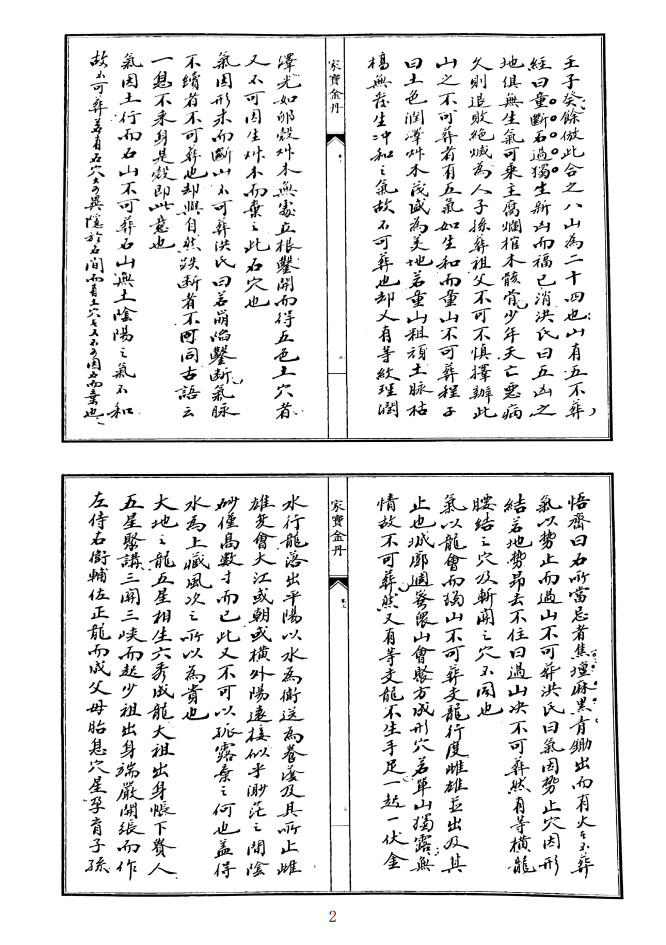 壬子癸餘倣此合之八山為二十四也山有五不葬
經曰童斷石過獨生新凶而福已消洪氏曰五凶之
地俱無生氣可乘主腐爛棺木骸骨少年夭亡惡病
久則退敗絕滅為人子孫葬祖父不可不慎擇辦此
山之不可葬者有五氣如生和而童山不可葬程子
曰土色潤澤草木茂盛為美地若童山粗頑土脉枯
槁無發生冲和之氣故不可葬也却又有等紋理潤
家寶金丹
澤光如卵殼草木無處立根鑿開而得五色土穴者
又不可因生草木而棄之此石穴也
氣因形來而斷山不可葬洪氏曰若崩陷鑿斷氣脉
不續者不可葬也却與自然跌斷者不同古語云
一息不來身是殼即此意也
氣因土行而石山不可葬石山無土陰陽之氣不和
故不可葬若有石穴又可異隱於石間而有土穴者又不可因石而棄也
悟齋曰石所當忌者焦壇麻黑青鋤出而有火者不葬
氣以勢止而過山不可葬洪氏曰氣因勢止穴因形
結若地勢昂去不住曰過山决不可葬然有等橫龍
腰結之穴及斬關之穴不同也
氣以龍會而獨山不可葬支龍行度雌雄並出及其
止也城廓週密衆山會聚方成形穴若單山獨露無
情故不可葬然又有等支龍不生手足一起一伏金
家寶金丹
水行龍落出平陽以水為衛送為養蔭及其所止雌
雄交會大江或朝或橫外陽遠接似乎渺茫之間陰
砂僅高數寸而已此又不可以孤露棄之何也蓋得
水為上藏風次之所以為貴也
大地之龍五星相生六秀成龍大祖出身帳下貴人
五星聚講三開三峽而起少祖出身端嚴開張而作
左侍右衛輔佐正龍而成父母胎息穴星孕育子孫
2